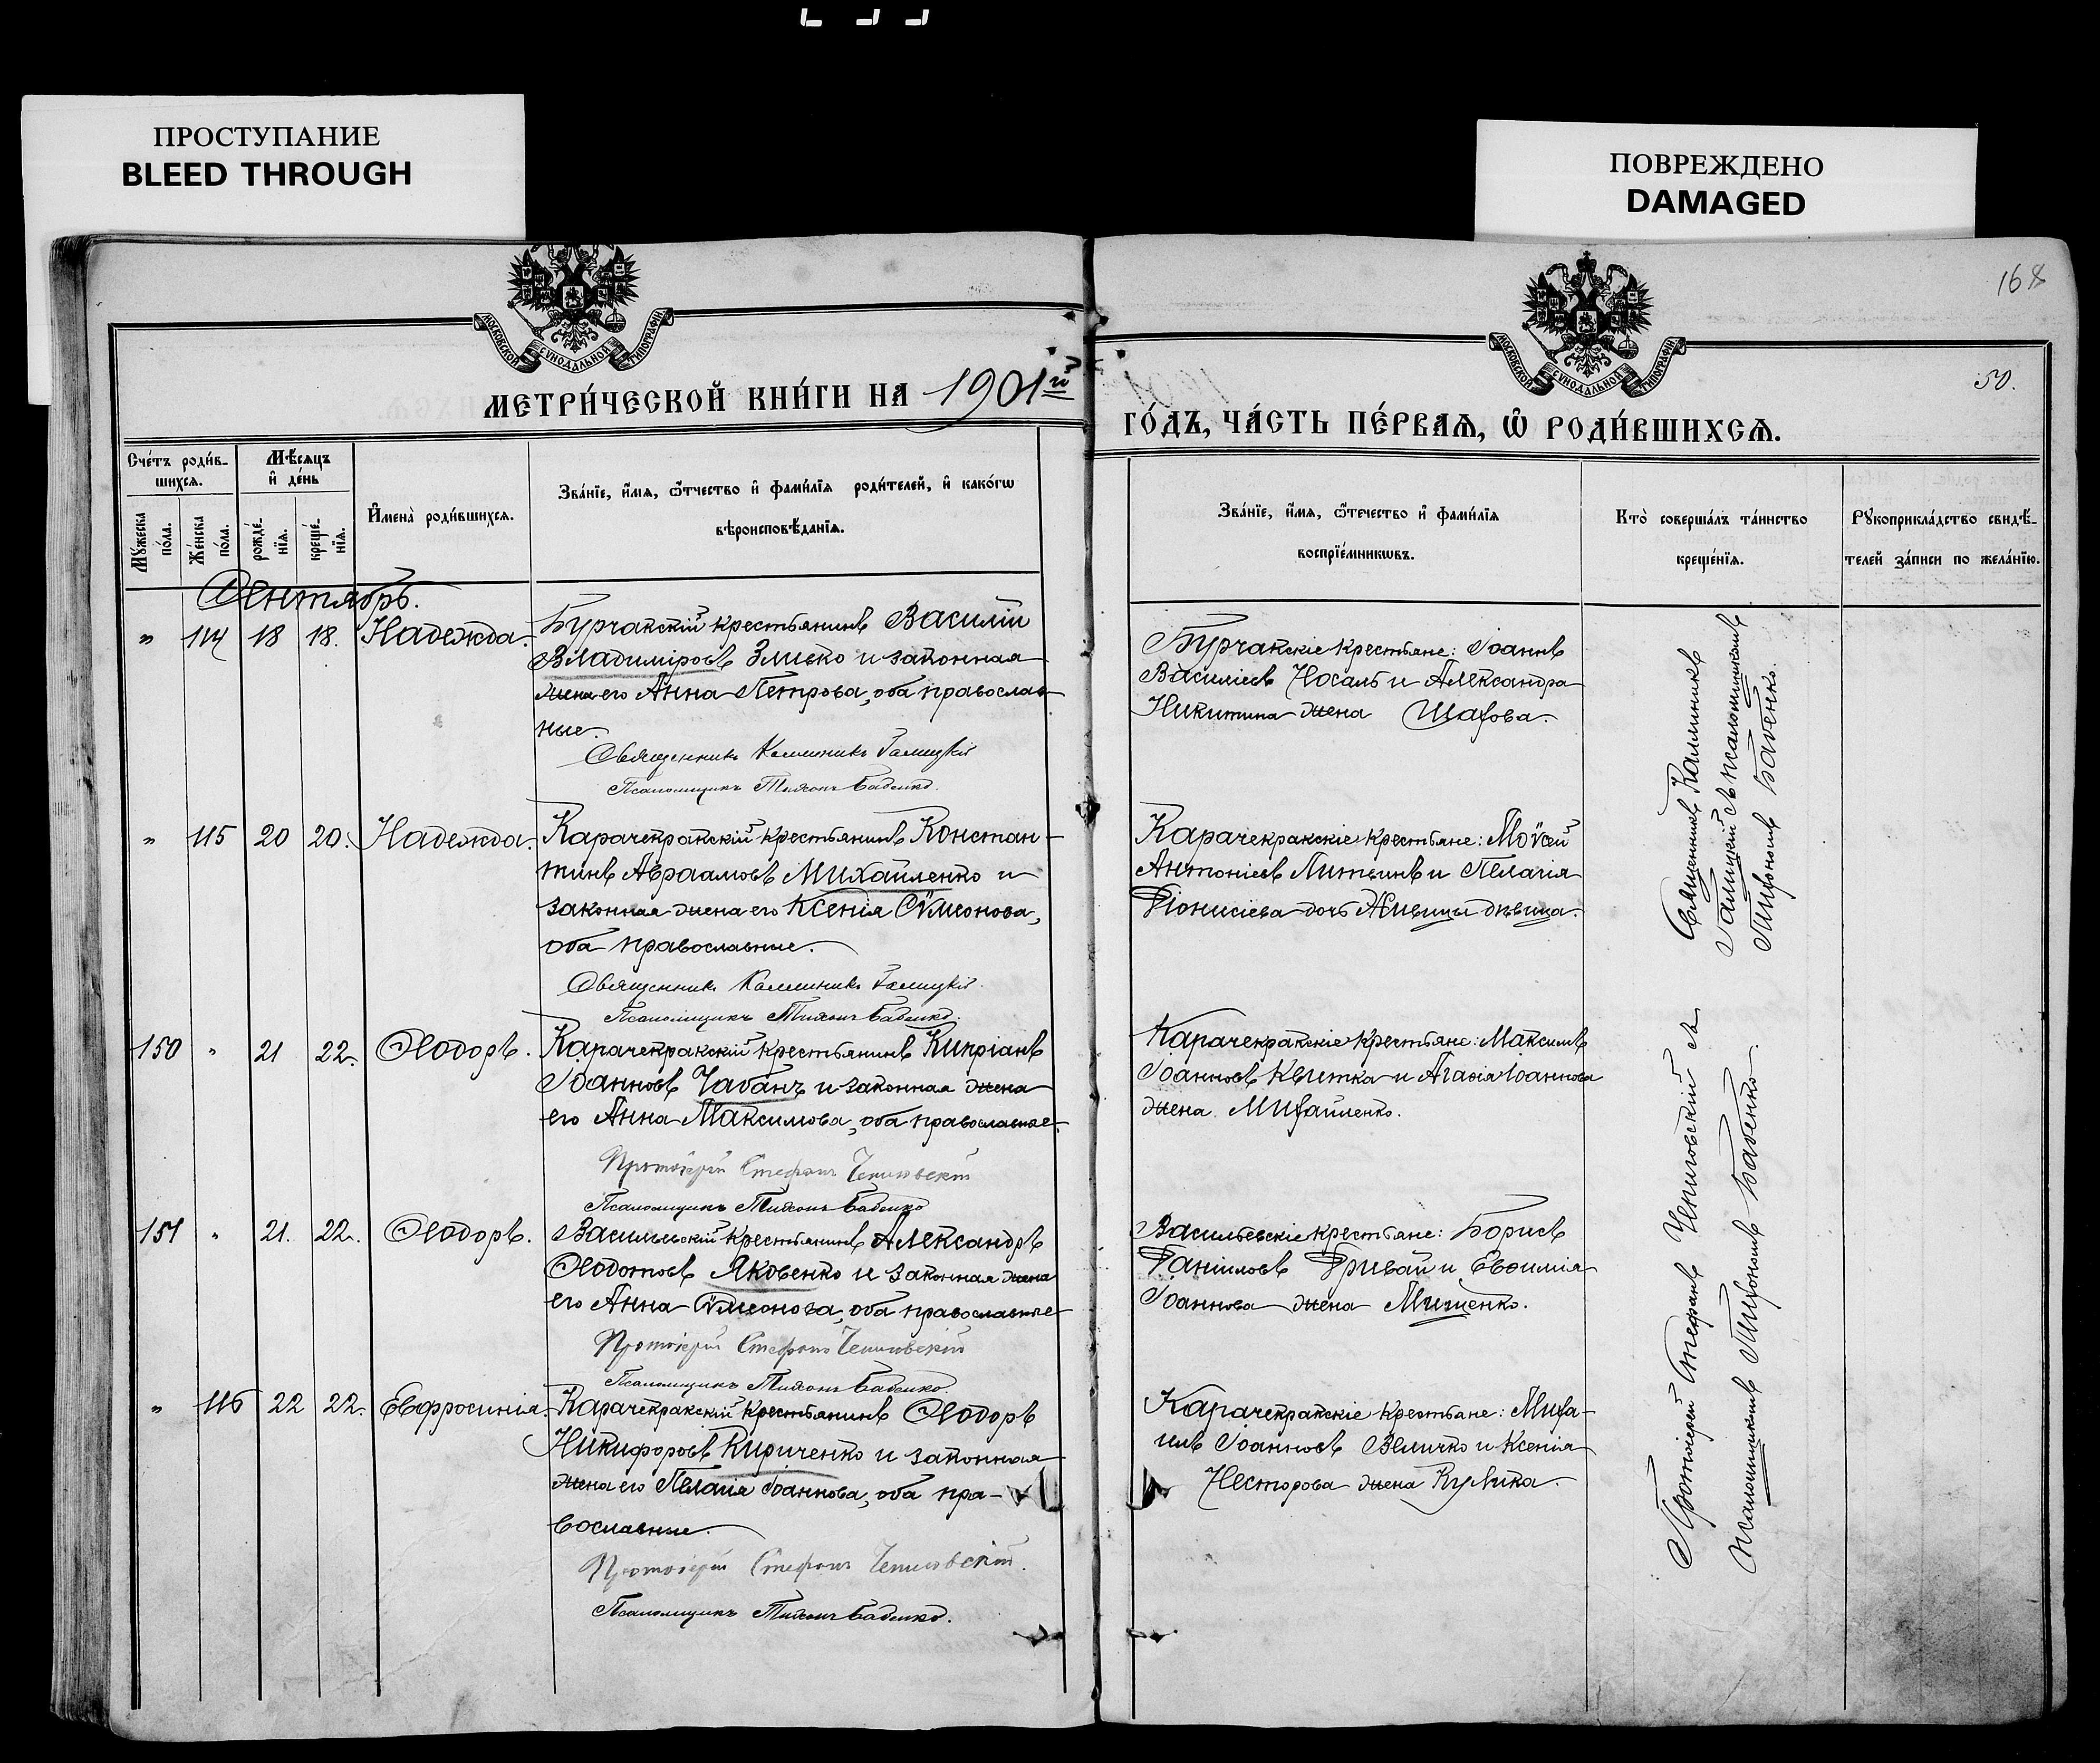 ПРОСТУПАНИЕ
BLEED THROUGH
ПОВРЕЖДЕНО
DAMAGED
168
МОСКОВСКОЙ СѴНОДАЛЬНОЙ ТИПОГРАФІИ
МОСКОВСКОЙ СѴНОДАЛЬНОЙ ТИПОГРАФІИ
50.
МЕТРИ́ЧЕСКОЙ КНИ́ГИ НА 1901й
ГО́ДЪ, ЧА́СТЬ ПЕ́РВАѦ, Ѡ҆ РОДИ́ВШИХСѦ.
Сче́тъ роди́в-
шихсѧ.
Мѣ́сѧцъ
и҆ де́нь
Мꙋ́жеска по́ла.
Же́нска по́ла.
рожде́-
нїѧ.
креще́-
нїѧ.
И҆мена̀ роди́вшихсѧ.
Зва́нїе, и҆́мѧ, ѻ҆́тчество и҆ фами́лїѧ роди́телей, и҆ како́гѡ
вѣроисповѣ́данїѧ.
Зва́нїе, и҆́мѧ, ѻ҆́течество и҆ фами́лїѧ
воспрїе́мникѡвъ.
Кто̀ соверша́лъ та́инство
креще́нїѧ.
Рꙋкоприкла́дство свидѣ́-
телей за́писи по жела́нїю.
Сентябрь.
" 114 18 18. Надежда. Бурчакскій крестьянинъ Василій
Владиміровъ Змиско и законная
жена его Анна Петрова, оба православ
ные.
Священникъ Каллиникъ Галицкій
Псаломщикъ Тихонъ Бабенко.
Бурчакскіе крестьяне: Іоаннъ
Василіевъ Носаль и Александра
Никитина жена Шахова.
" 115 20 20. Надежда. Карачекракскій крестьянинъ Констан-
тинъ Авраамовъ Михайленко и
законная жена его Ксенія Сѵмеонова,
оба православные.
Священникъ Каллиникъ Галицкій.
Псаломщикъ Тихонъ Бабенко.
Карачекракскіе крестьяне: Моѵсей
Антоніевъ Литвинъ и Пелагія
Діонисіева дочь Живицы дѣвица.
Священникъ Каллиникъ
Галицкій съ псаломщикомъ
Тихономъ Бабенко.
150 " 21 22. Ѳеодоръ. Карачекракскій крестьянинъ Кипріанъ
Іоанновъ Чабанъ и законная жена
его Анна Максимова, оба православные.
Протоіерей Стефанъ Черниговскій
Псаломщикъ Тихонъ Бабенко
Карачекракскіе крестьяне: Максимъ
Іоанновъ Квитка и Агаѳія Іоаннова
жена Михайленко.
151 " 21. 22. Ѳеодоръ. Васильевскій крестьянинъ Александръ
Ѳеодотовъ Яковенко и законная жена
его Анна Сѵмеонова, оба православные
Протоіерей Стефанъ Черниговскій
Псаломщикъ Тихонъ Бабенко.
Васильевскіе крестьяне: Борисъ
Даніиловъ Гривай и Евѳимія
Іоаннова жена Мищенко.
" 116 22 22. Евфросинія. Карачекракскій крестьянинъ Ѳеодоръ
Никифоровъ Кириченко и законная
жена его Пелагія Іоаннова, оба пра-
вославные.
Протоіерей Стефанъ Черниговскій.
Псаломщикъ Тихонъ Бабенко.
Карачекракскіе крестьяне: Миха-
илъ Іоанновъ Величко и Ксенія
Несторова жена Кулика.
Протоіерей Стефанъ Черниговскій съ
псаломщикомъ Тихономъ Бабенко.